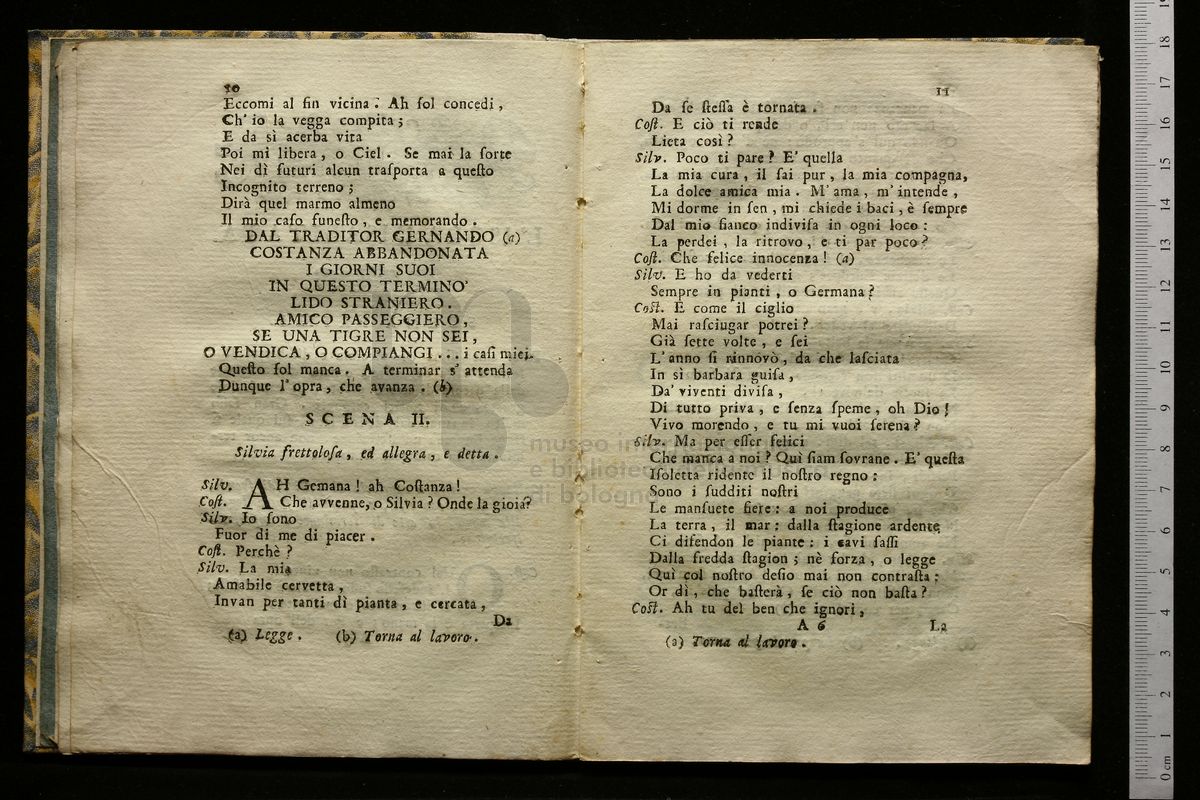 10
Eccomi al fin vicina. Ah ſol concedi,
Ch' io la vegga compita;
E da sì acerba vita
Poi mi libera, o Ciel. Se mai la ſorte
Nei dì futuri alcun traſporta a queſto
Incognito terreno;
Dirà quel marmo almeno
Il mio caſo funeſto, e memorando.
DAL TRADITOR GERNANDO (a)
COSTANZA ABBANDONATA
I GIORNI SUOI
IN QUESTO TERMINO'
LIDO STRANIERO.
AMICO PASSEGGIERO,
SE UNA TIGRE NON SEI,
O VENDICA, O COMPIANGI... i caſi miei.
Queſto ſol manca. A terminar s' attenda
Dunque l' opra, che avanza. (b)
SCENA II.
Silvia frettoloſa, ed allegra, e detta.
Silv. AH Gemana! ah Coſtanza!
Coſt. Che avvenne, o Silvia? Onde la gioia?
Silv. Io ſono
Fuor di me di piacer.
Coſt. Perchè?
Silv. La mia
Amabile cervetta,
Invan per tanti dì pianta, e cercata,
Da
(a) Legge. (b) Torna al lavoro.
11
Da ſe ſteſſa è tornata.
Coſt. E ciò ti rende
Lieta così?
Silv. Poco ti pare? E' quella
La mia cura, il ſai pur, la mia compagna,
La dolce amica mia. M' ama, m' intende,
Mi dorme in ſen, mi chiede i baci, è ſempre
Dal mio fianco indiviſa in ogni loco:
La perdei, la ritrovo, e ti par poco?
Coſt. Che felice innocenza! (a)
Silv. E ho da vederti
Sempre in pianti, o Germana?
Coſt. E come il ciglio
Mai raſciugar potrei?
Già ſette volte, e ſei
L' anno ſi rinnovò, da che laſciata
In sì barbara guiſa,
Da' viventi diviſa,
Di tutto priva, e ſenza ſpeme, oh Dio!
Vivo morendo, e tu mi vuoi ſerena?
Silv. Ma per eſſer felici
Che manca a noi? Quì ſiam ſovrane. E' queſta
Iſoletta ridente il noſtro regno:
Sono i ſudditi noſtri
Le manſuete fiere: a noi produce
La terra, il mar: dalla ſtagione ardente
Ci difendon le piante: i cavi ſaſſi
Dalla fredda ſtagion; nè forza, o legge
Quì col noſtro deſio mai non contraſta:
Or dì, che baſterà, ſe ciò non baſta?
Coſt. Ah tu del ben che ignori,
A 6 La
(a) Torna al lavoro.
museo in
e bibliotec
di bologna